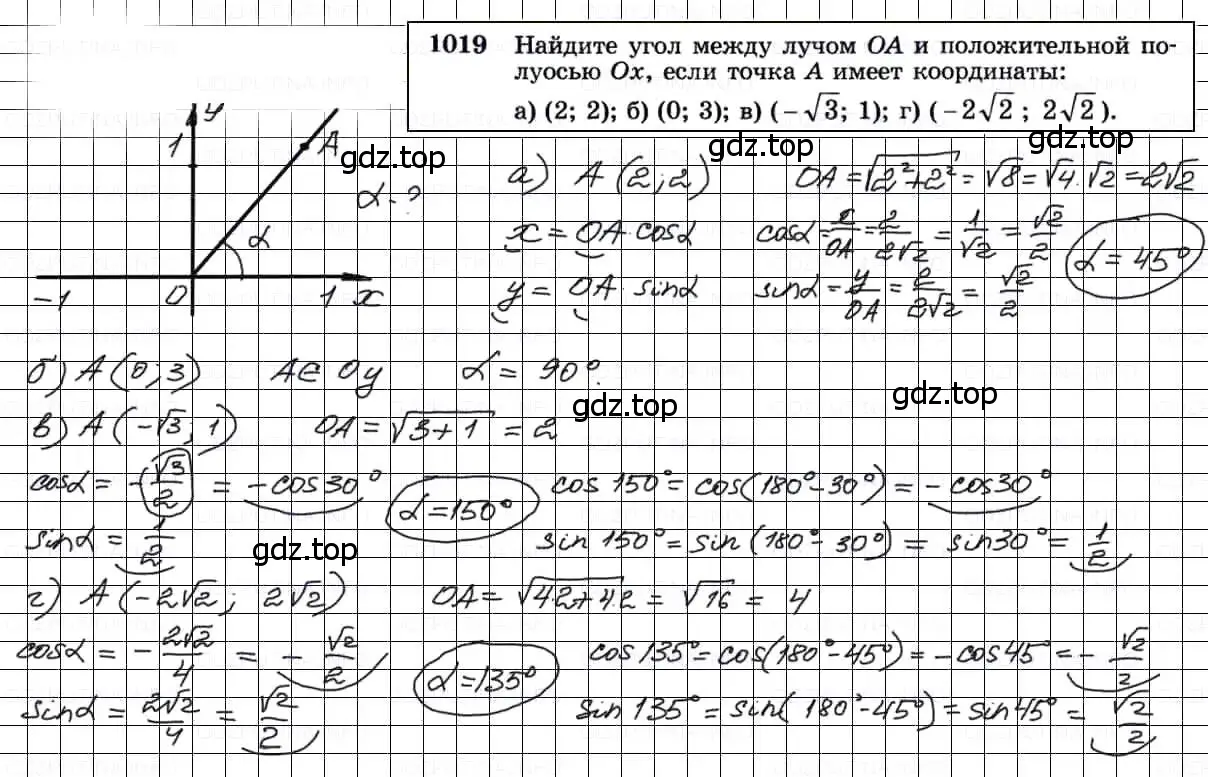 1019 Найдите угол между лучом OA и положительной по-
луосью Ox, если точка A имеет координаты:
а) (2; 2); б) (0; 3); в) (−√3; 1); г) (−2√2; 2√2).
y
1
A
α - ?
α
−1 0 1 x
gdz.top
gdz.top
gdz.top
а) A (2; 2) OA = √(2² + 2²) = √8 = √4·√2 = 2√2
x = OA·cosα cosα = x/OA = 2/2√2 = 1/√2 = √2/2
α = 45°
y = OA·sinα sinα = y/OA = 2/2√2 = √2/2
б) A (0; 3) A ∈ Oy α = 90°.
gdz.top
gdz.top
в) A (−√3; 1) OA = √(3+1) = 2
cosα = −√3/2 = −cos30° α = 150° cos150° = cos(180°−30°) = −cos30°
sinα = 1/2 sin150° = sin(180°−30°) = sin30° = 1/2
gdz.top
г) A (−2√2; 2√2) OA = √(4·2+4·2) = √16 = 4
cosα = −2√2/4 = −√2/2 α = 135° cos135° = cos(180°−45°) = −cos45° = −√2/2
sinα = 2√2/4 = √2/2 sin135° = sin(180°−45°) = sin45° = √2/2
gdz.top